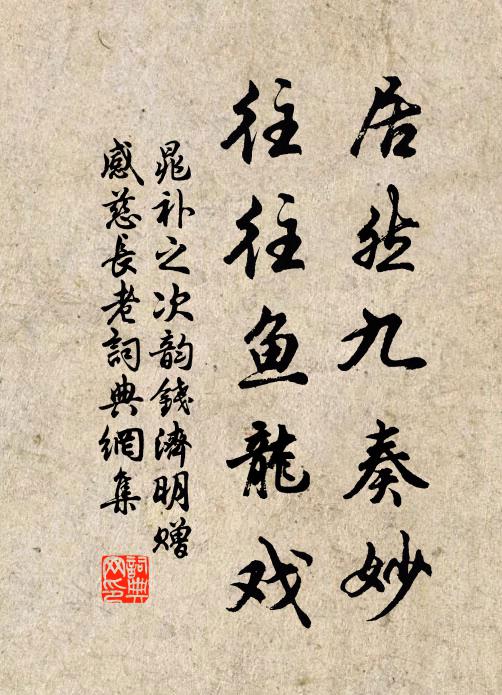 居然九奏妙
往往鱼龍戏
晁补之次韵錢濟明赠
感慈長老詞典網集
詞典网印